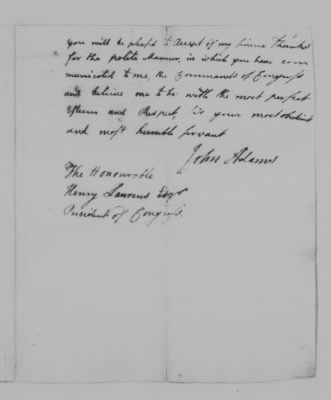 you will be pleased to accept of my sincere Thanks
for the polite Manner, in which you have com
municated to me, the Commands of Congress
and believe me to be with the most perfect
Esteem and Respect, Sir your most obedient
and most humble servant
John Adams
The Honourable
Henry Laurens Esqr
President of Congress.